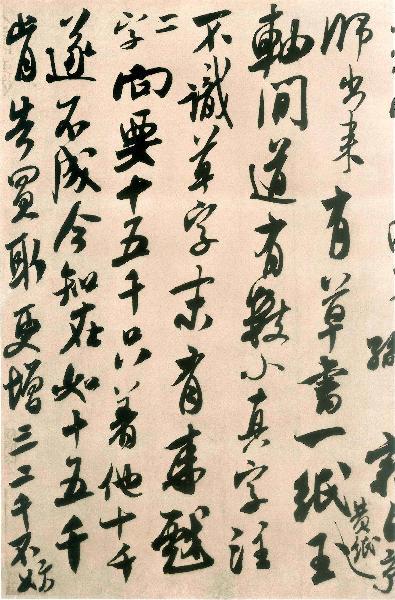 師出來有草書一紙玉
黄紙
軸間道有數小真字注
不識草字末有來戲
二字向要十五千只著他十千
遂不成今知在如十五千
肯告買取更增三二千不妨